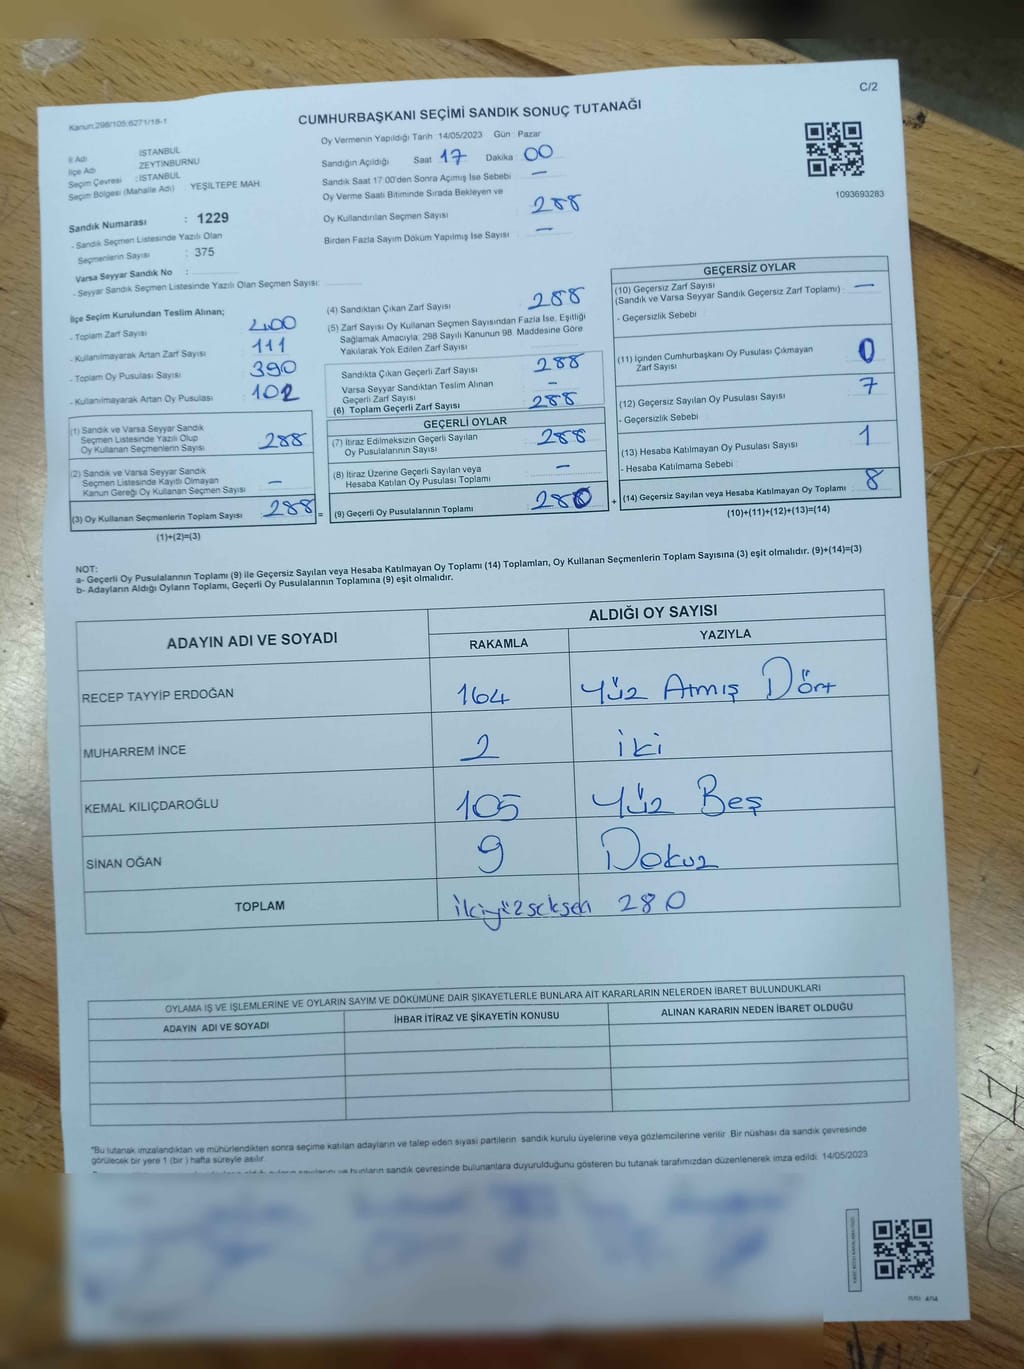 C/2
Kanun:298/105;6271/18-1
CUMHURBAŞKANI SEÇİMİ SANDIK SONUÇ TUTANAĞI
İl Adı : İSTANBUL
İlçe Adı : ZEYTİNBURNU
Seçim Çevresi : İSTANBUL
Seçim Bölgesi (Mahalle Adı) : YEŞİLTEPE MAH.
Sandık Numarası : 1229
- Sandık Seçmen Listesinde Yazılı Olan
Seçmenlerin Sayısı : 375
Varsa Seyyar Sandık No :
- Seyyar Sandık Seçmen Listesinde Yazılı Olan Seçmen Sayısı:
Oy Vermenin Yapıldığı Tarih :14/05/2023 Gün : Pazar
Sandığın Açıldığı Saat 17 Dakika 00
Sandık Saat 17:00'den Sonra Açımış İse Sebebi —
Oy Verme Saati Bitiminde Sırada Bekleyen ve
Oy Kullandırılan Seçmen Sayısı 288
Birden Fazla Sayım Döküm Yapılmış İse Sayısı —
1093693283
İlçe Seçim Kurulundan Teslim Alınan;
- Toplam Zarf Sayısı 400
- Kullanılmayarak Artan Zarf Sayısı 111
- Toplam Oy Pusulası Sayısı 390
- Kullanılmayarak Artan Oy Pusulası 102
(1) Sandık ve Varsa Seyyar Sandık
Seçmen Listesinde Yazılı Olup
Oy Kullanan Seçmenlerin Sayısı 288
(2) Sandık ve Varsa Seyyar Sandık
Seçmen Listesinde Kayıtlı Olmayan
Kanun Gereği Oy Kullanan Seçmen Sayısı —
(3) Oy Kullanan Seçmenlerin Toplam Sayısı 288 =
(1)+(2)=(3)
(4) Sandıktan Çıkan Zarf Sayısı 288
(5) Zarf Sayısı Oy Kullanan Seçmen Sayısından Fazla İse, Eşitliği
Sağlamak Amacıyla, 298 Sayılı Kanunun 98. Maddesine Göre
Yakılarak Yok Edilen Zarf Sayısı
Sandıkta Çıkan Geçerli Zarf Sayısı 288
Varsa Seyyar Sandıktan Teslim Alınan
Geçerli Zarf Sayısı —
(6) Toplam Geçerli Zarf Sayısı 288
GEÇERLİ OYLAR
(7) İtiraz Edilmeksizin Geçerli Sayılan
Oy Pusulalarının Sayısı 288
(8) İtiraz Üzerine Geçerli Sayılan veya
Hesaba Katılan Oy Pusulası Toplamı —
(9) Geçerli Oy Pusulalarının Toplamı 280 +
GEÇERSİZ OYLAR
(10) Geçersiz Zarf Sayısı
(Sandık ve Varsa Seyyar Sandık Geçersiz Zarf Toplamı) : —
- Geçersizlik Sebebi
(11) İçinden Cumhurbaşkanı Oy Pusulası Çıkmayan
Zarf Sayısı 0
(12) Geçersiz Sayılan Oy Pusulası Sayısı 7
- Geçersizlik Sebebi
(13) Hesaba Katılmayan Oy Pusulası Sayısı 1
- Hesaba Katılmama Sebebi
(14) Geçersiz Sayılan veya Hesaba Katılmayan Oy Toplamı 8
(10)+(11)+(12)+(13)=(14)
NOT:
a- Geçerli Oy Pusulalarının Toplamı (9) ile Geçersiz Sayılan veya Hesaba Katılmayan Oy Toplamı (14) Toplamları, Oy Kullanan Seçmenlerin Toplam Sayısına (3) eşit olmalıdır. (9)+(14)=(3)
b- Adayların Aldığı Oyların Toplamı, Geçerli Oy Pusulalarının Toplamına (9) eşit olmalıdır.
ADAYIN ADI VE SOYADI
ALDIĞI OY SAYISI
RAKAMLA YAZIYLA
RECEP TAYYİP ERDOĞAN 164 Yüz Atmış Dört
MUHARREM İNCE 2 iki
KEMAL KILIÇDAROĞLU 105 Yüz Beş
SİNAN OĞAN 9 Dokuz
TOPLAM İkiyüzseksen 280
OYLAMA İŞ VE İŞLEMLERİNE VE OYLARIN SAYIM VE DÖKÜMÜNE DAİR ŞİKAYETLERLE BUNLARA AİT KARARLARIN NELERDEN İBARET BULUNDUKLARI
ADAYIN ADI VE SOYADI İHBAR İTİRAZ VE ŞİKAYETİN KONUSU ALINAN KARARIN NEDEN İBARET OLDUĞU
*Bu tutanak imzalandıktan ve mühürlendikten sonra seçime katılan adayların ve talep eden siyasi partilerin sandık kurulu üyelerine veya gözlemcilerine verilir. Bir nüshası da sandık çevresinde
görülecek bir yere 1 (bir) hafta süreyle asılır.
sandık çevresinde bulunanlara duyurulduğunu gösteren bu tutanak tarafımızdan düzenlenerek imza edildi. 14/05/2023